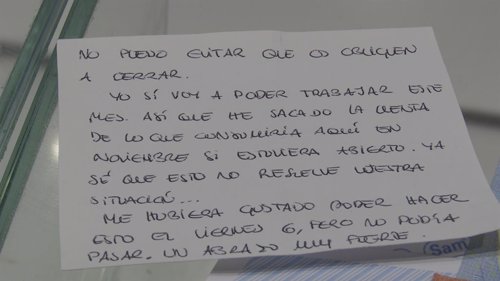 NO PUEDO EVITAR QUE OS OBLIGUEN
A CERRAR.
YO SÍ VOY A PODER TRABAJAR ESTE
MES. ASÍ QUE HE SACADO LA CUENTA
DE LO QUE CONSUMIRÍA AQUÍ EN
NOVIEMBRE SI ESTUVIERA ABIERTO. YA
SÉ QUE ESTO NO RESUELVE VUESTRA
SITUACIÓN...
ME HUBIERA GUSTADO PODER HACER
ESTO EL VIERNES 6, PERO NO PODÍA
PASAR. UN ABRAZO MUY FUERTE.
(Sam